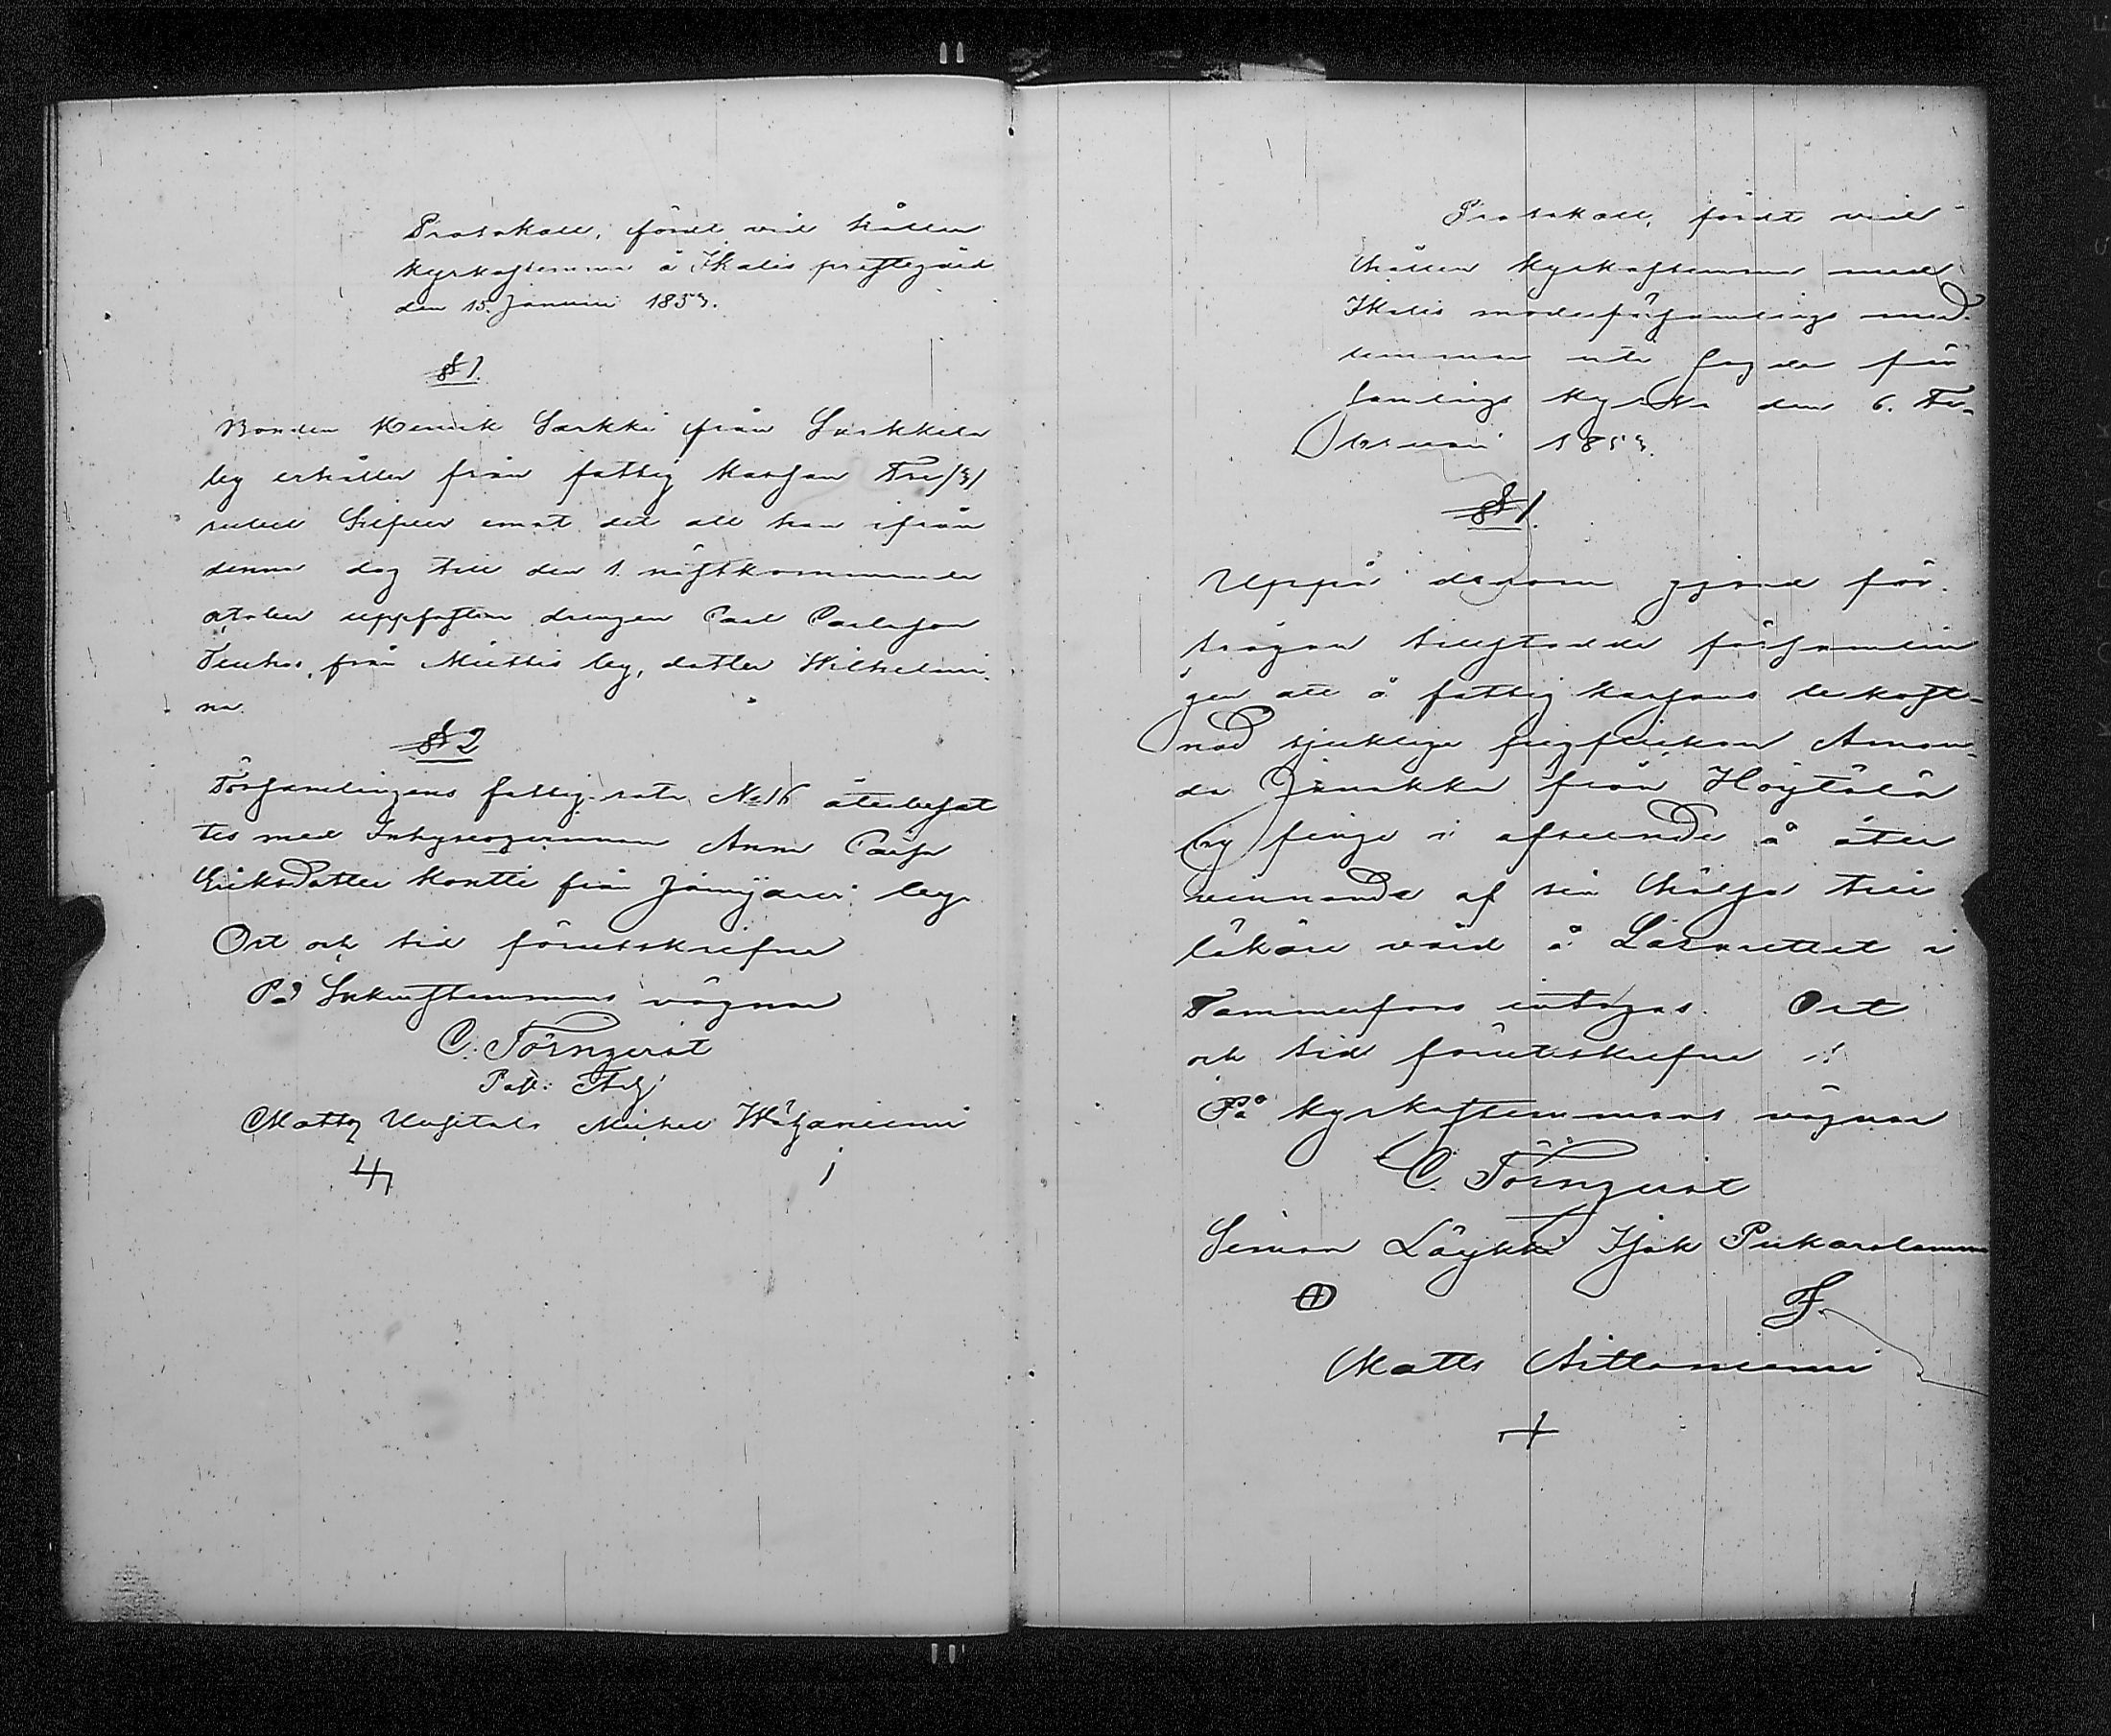 Protokoll, fördt vid hållen
kyrkostemma å Ikalis prestegård
den 15. Januari 1853.
§ 1.
Bonden Henrik Sarkki från Sarkkila
by erhåller från fattig kassan Tre /3/
rubel Silfver emot det att han ifrån
denna dag till den 1. nästkommande
october uppfostra drengen Carl Carlsson
från Miettis by, dotter Wilhelmi-
na.
§ 2
Församlingens fattig rote No 16 återbesat
tes med Inhysesqvinnan Anna Caisa
Eriksdotter Kontti från Jämijärvi by.
Ort och tid förutskrifne
På Sockenstemmans vägnar
C. Törnqvist
Matts Michel
Protokoll, fördt vid
hållen kyrkostemma med
Ikalis moderförsamlings med-
lemmar uti sagde för
samlings kyrka den 6. Fe-
bruari 1853.
§ 1.
Uppå derom gjord för-
frågan tillstadde församlin
gen att å fattig kassans bekost-
nad sjuklige pigflickan Aman-
da Jänikkä från Höytölä
by finge i afseende å åter
vinnande af sin hälsa till
läkare vård å Lazarettet i
Tammerfors intagas. Ort
och tid förutskrifne
På kyrkostemmans vägnar
C. Törnqvist
Simon Löykki Isak Pukaralammi
Matts Aittoniemi